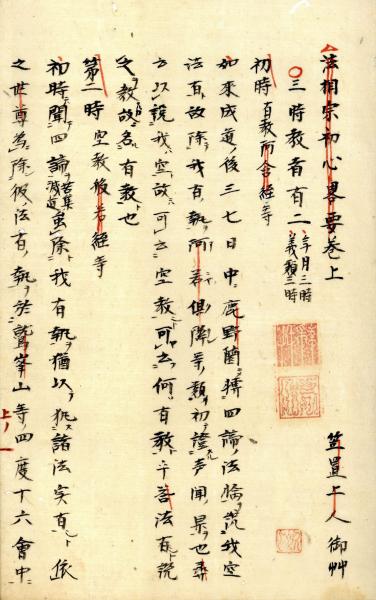 法相宗初心畧要卷上
笠置上人御艸
三時教者有二 年月三時 義類三時
初時 有教阿含経等
如来成道後三七日中鹿野薗轉四諦法輪説我空
法有故除我有執阿若倶隣等類初證声聞果也
以説我空故可云空教可云何有教乎答法有説
之教故名有教也
第二時 空教般若経等
初時聞四諦 苦集滅道 虽除我有執猶以執諸法実有依
之世尊為除彼法有執於鷲峯山等四度十六會中
上ノ一